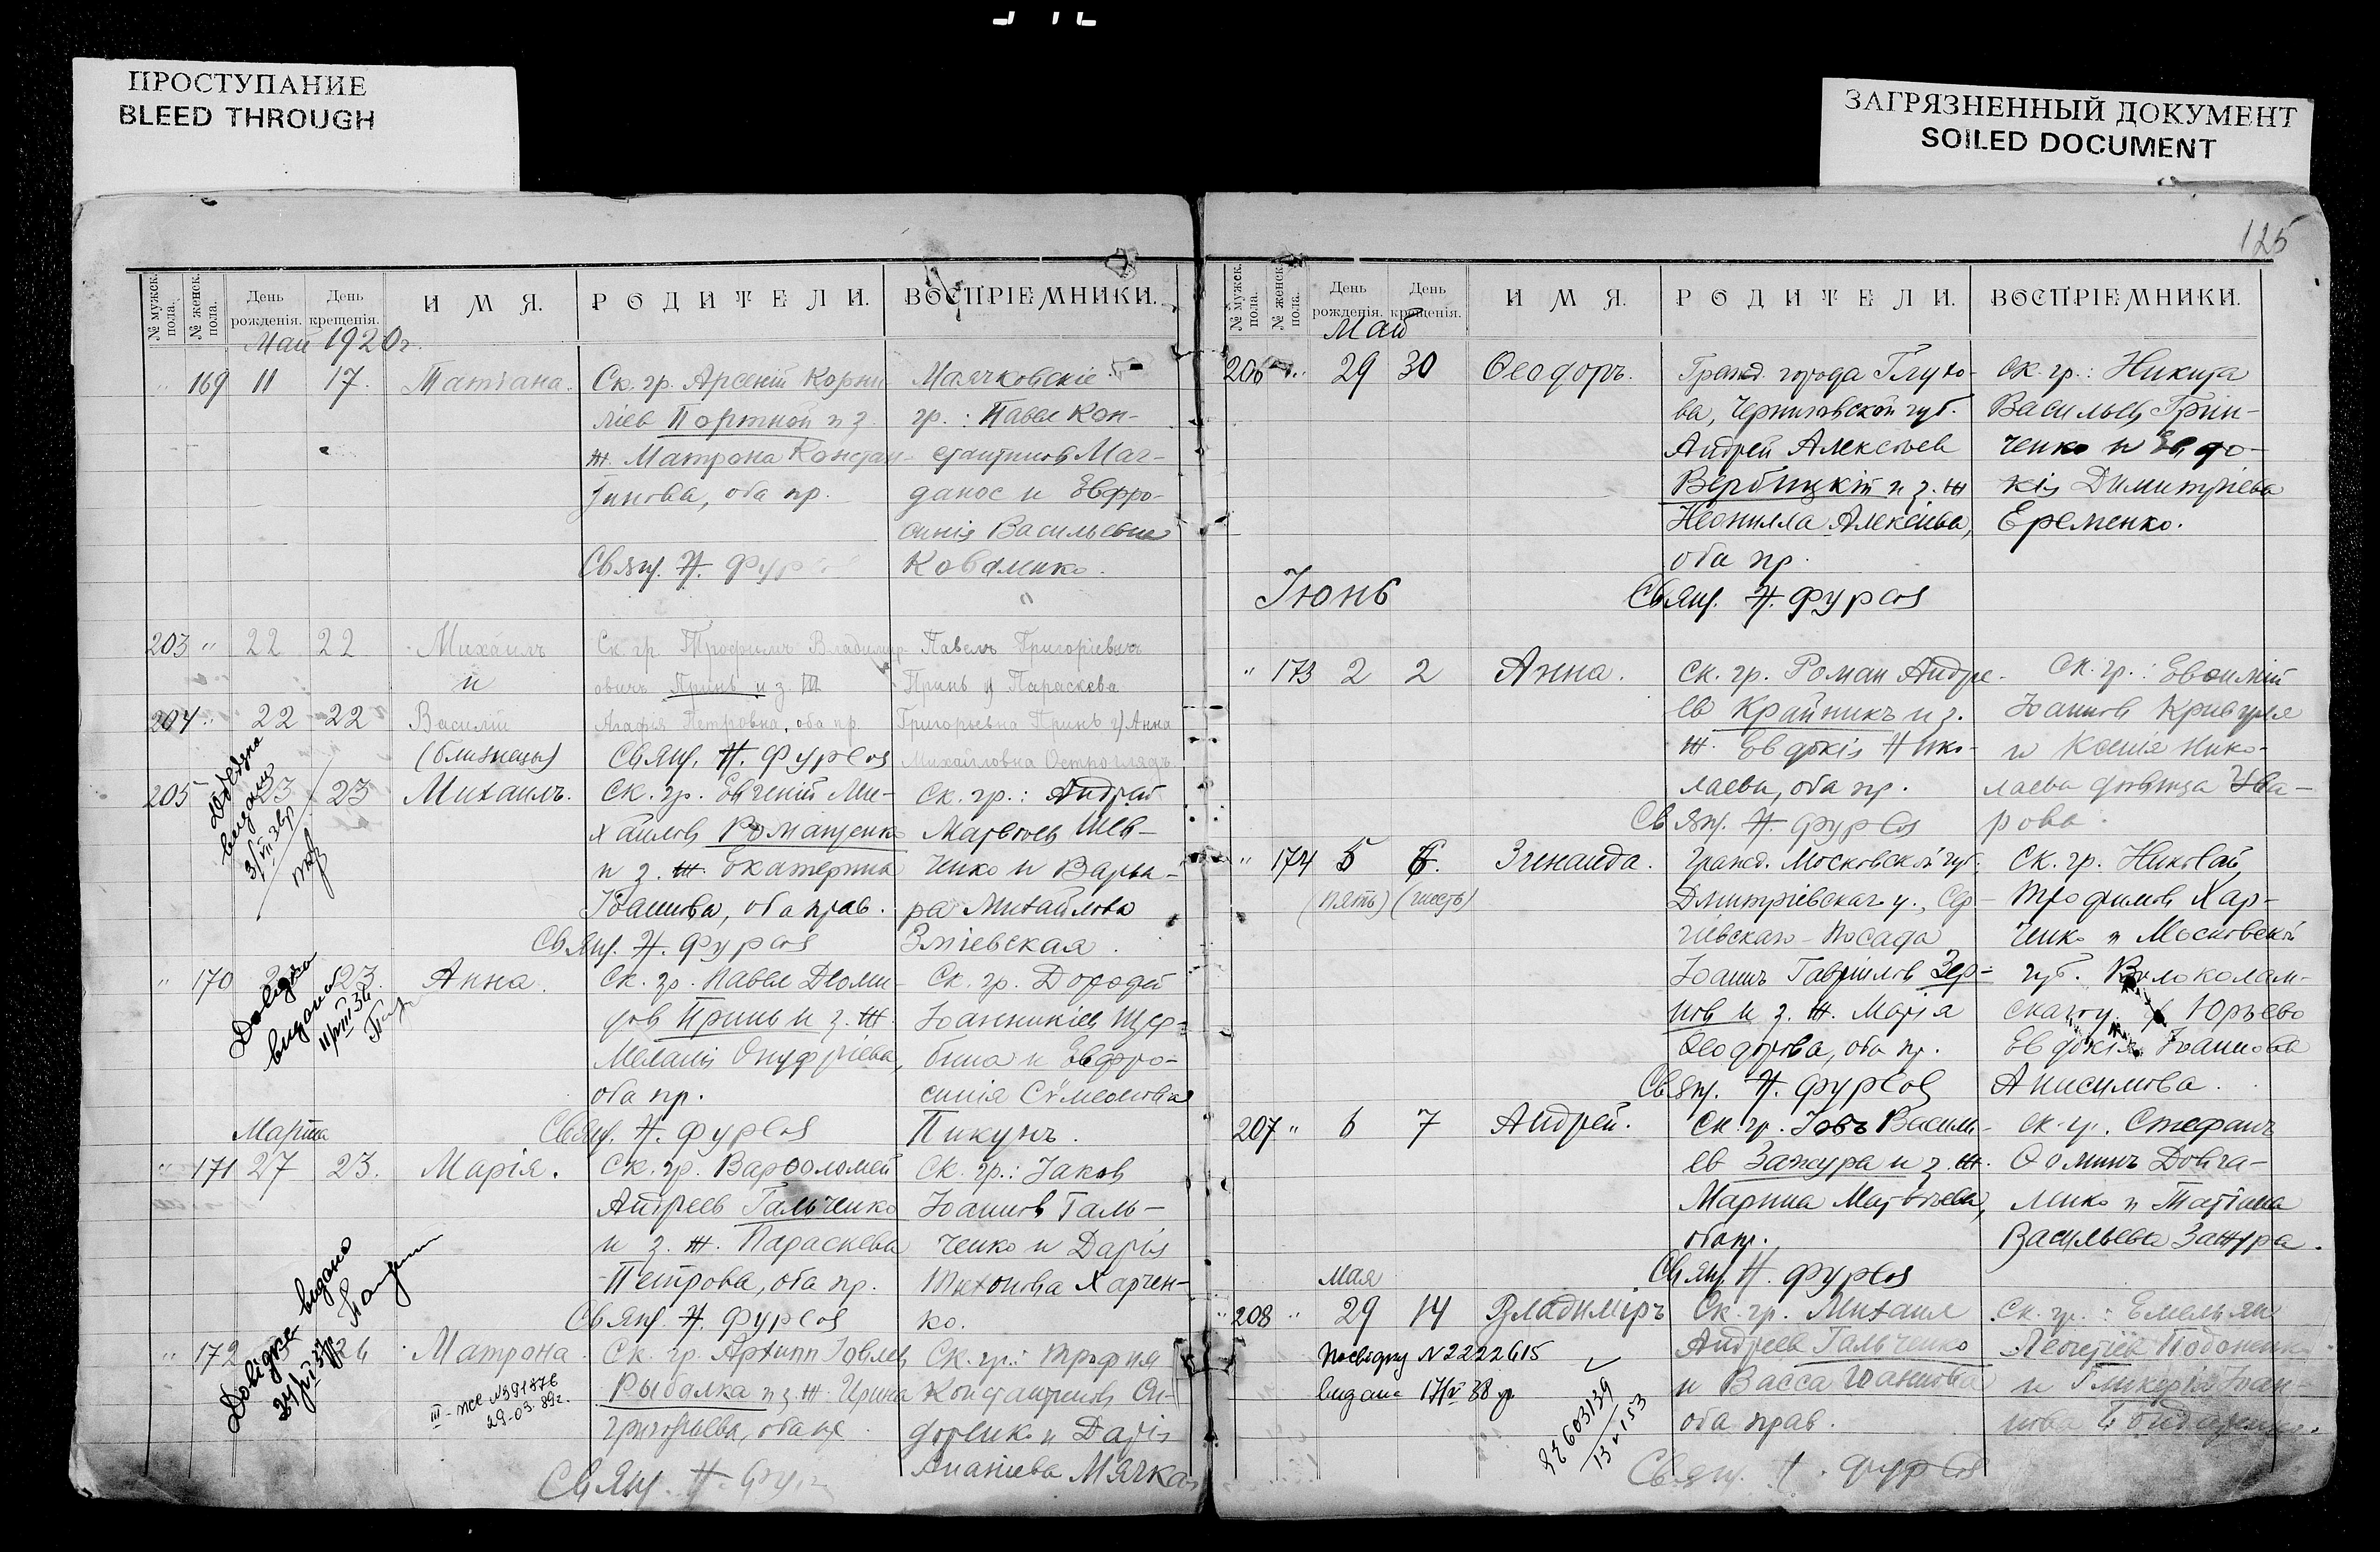 ПРОСТУПАНИЕ
BLEED THROUGH
ЗАГРЯЗНЕННЫЙ ДОКУМЕНТ
SOILED DOCUMENT
№ мужск. пола.
№ женск. пола.
День рожденія.
День крещенія.
ИМЯ.
РОДИТЕЛИ.
ВОСПРІЕМНИКИ.
Май 1920 г.
" 169 11 17. Татіана. Ск. гр. Арсеній Корни-
ліев Портной и з.
ж. Матрона Констан-
тинова, оба пр.
Свящ. Н.
Маячковскіе
гр.: Павел Кон-
стантинов Маг-
данос и Евфро-
синія Васильевна
Коваленко.
203 " 22 22 Михаилъ
и
204 " 22 22 Василій
(близнецы)
Ск. гр. Трофимъ Владимир-
овичъ Принь и з. ж.
Агафія Петровна, оба пр.
Свящ. Н. Фурсов
Павелъ Григоріевичъ
Принь и Параскева
Григорьевна Принь и Анна
Михайловна Остроглядъ.
205 23 23 Михаилъ.
Ск. гр. Евгеній Ми-
хаилов Романценко
и з. ж. Екатерина
Іоаннова, оба прав.
Свящ. Н. Фурсов
Ск. гр.: Андрей
Матвѣев Шев-
ченко и Варва-
ра Михайлова
Зміевская.
видано
" 170 23. Анна.
Ск. гр. Павел Діоми-
дов Принь и з. ж.
Меланія Онуфріева,
оба пр.
Свящ. Н. Фурсов
Ск. гр. Дорофей
Іоанникіев Щер-
бина и Евфро-
синія Сѵмеонова
Пикунъ.
Довідка
видана
11/VIII 36
Марта
" 171 27 23. Марія.
Ск. гр. Варѳоломей
Андреев Гальченко
и з. ж. Параскева
Петрова, оба пр.
Свящ. Н. Фурсов
Ск. гр.: Іаков
Іоаннов Галь-
ченко и Дарія
Тихонова Харчен-
ко.
" 172 26 Матрона.
Ск. гр. Архипп Іовлев
Рыбалка и з. ж. Ирина
Григорьева, оба пр.
Свящ. Н.
Ск. гр.: Трофим
Константинов
и Дарія
Ананіева Мячка
Довідка видано
III-ЖС №391876
29-03.89г.
125
№ мужск. пола.
№ женск. пола.
День рожденія.
День крещенія.
ИМЯ.
РОДИТЕЛИ.
ВОСПРІЕМНИКИ.
Май
206 " 29 30 Ѳеодоръ.
Гражд. города Глухо-
ва, Черниговской губ.
Андрей Алексѣев
Вербицкій и з. ж
Неонилла Алексѣева,
оба пр.
Свящ. Н. Фурсов
Ск. гр.: Никита
Васильев Грин-
ченко и Евдо-
кія Димитріева
Еременко.
Іюнь
" 173 2 2 Анна.
Ск. гр. Роман Андре-
ев Крайникъ и з.
ж. Евдокія Нико-
лаева, оба пр.
Свящ. Н. Фурсов
Ск. гр.: Евѳимій
Іоаннов Кривуля
и Ксенія Нико-
лаева дѣвица Ува-
рова.
" 174 5 6. Зинаида.
(пять) (шесть)
Гражд. Московской губ.
Дмитріевскаго у., Сер-
гіевскаго-Посада
Іоаннъ Гавріилов Зер-
нов и з. ж. Марія
Ѳеодорова, оба пр.
Свящ. Н. Фурсов
Ск. гр. Николай
Трофимов Хар-
ченко и Московской
губ. Волоколам-
скаго у. Юрьево
Евдокія Іоаннова
Анисимова.
207 " 6 7 Андрей.
Ск. гр. Іовъ Васильев
Зажура и з. ж.
Марина Матвѣева,
оба пр.
Свящ. Н. Фурсов
Ск. гр. Стефанъ
Ѳоминъ Довга-
ленко и Татіана
Васильева Зажура.
Мая
208 " 29 14 Владиміръ
Ск. гр. Михаил
Андреев Гальченко
и Васса Іоаннова
оба прав.
Свящ. Н. Фурсов
Ск. гр.: Емельян
и Гликерія Іоан-
нова
№2222615
видана 17/V 38 р